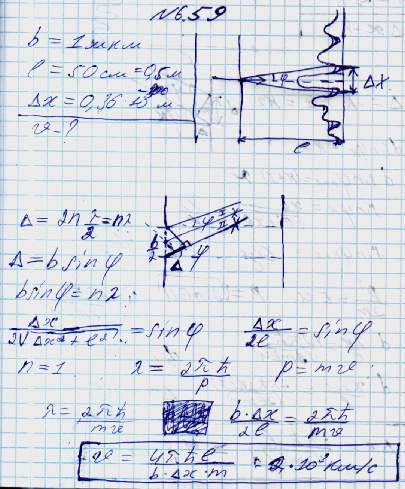 №6.59
b = 1 мкм
l = 50 см = 0,5 м
Δx = 0,36 м
v - ?
2φ
Δx
l
Δ = 2n λ/2 = nλ
Δ = b sinφ
b sinφ = nλ
b/2
Δ
φ
= sinφ
Δx/2l = sinφ
n = 1
λ = 2πħ/p
p = mv
λ = 2πħ/mv
b·Δx/2l = 2πħ/mv
v = 4πħl/b·Δx·m = 2·10³ км/с